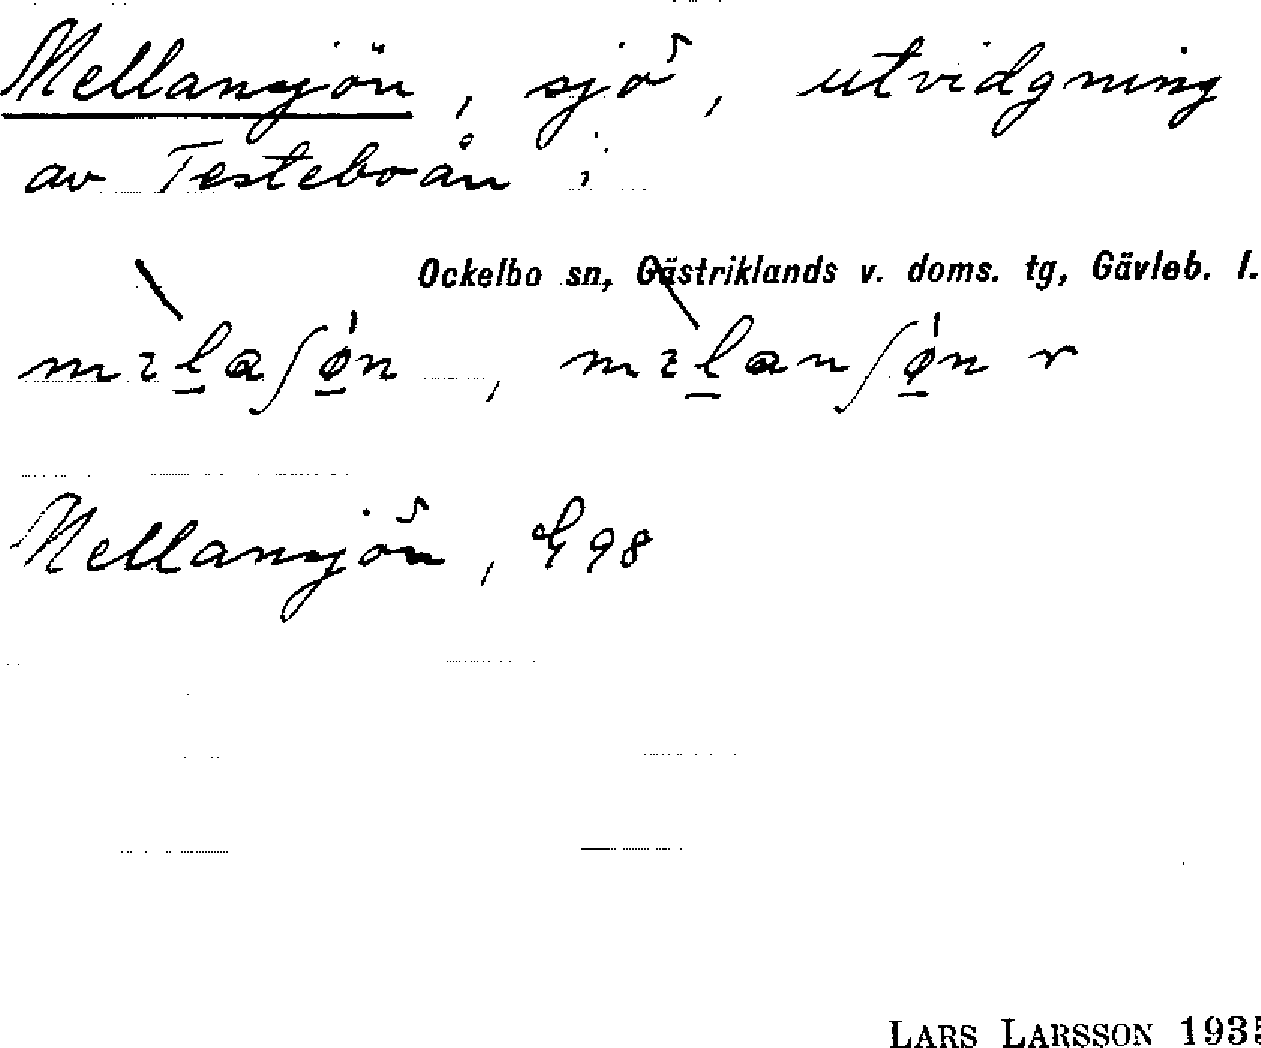 Mellansjön, sjö, utvidgning
av Testeboån i
Ockelbo sn, Gästriklands v. doms. tg, Gävleb. l.
Mellansjön, G98
LARS LARSSON 1935